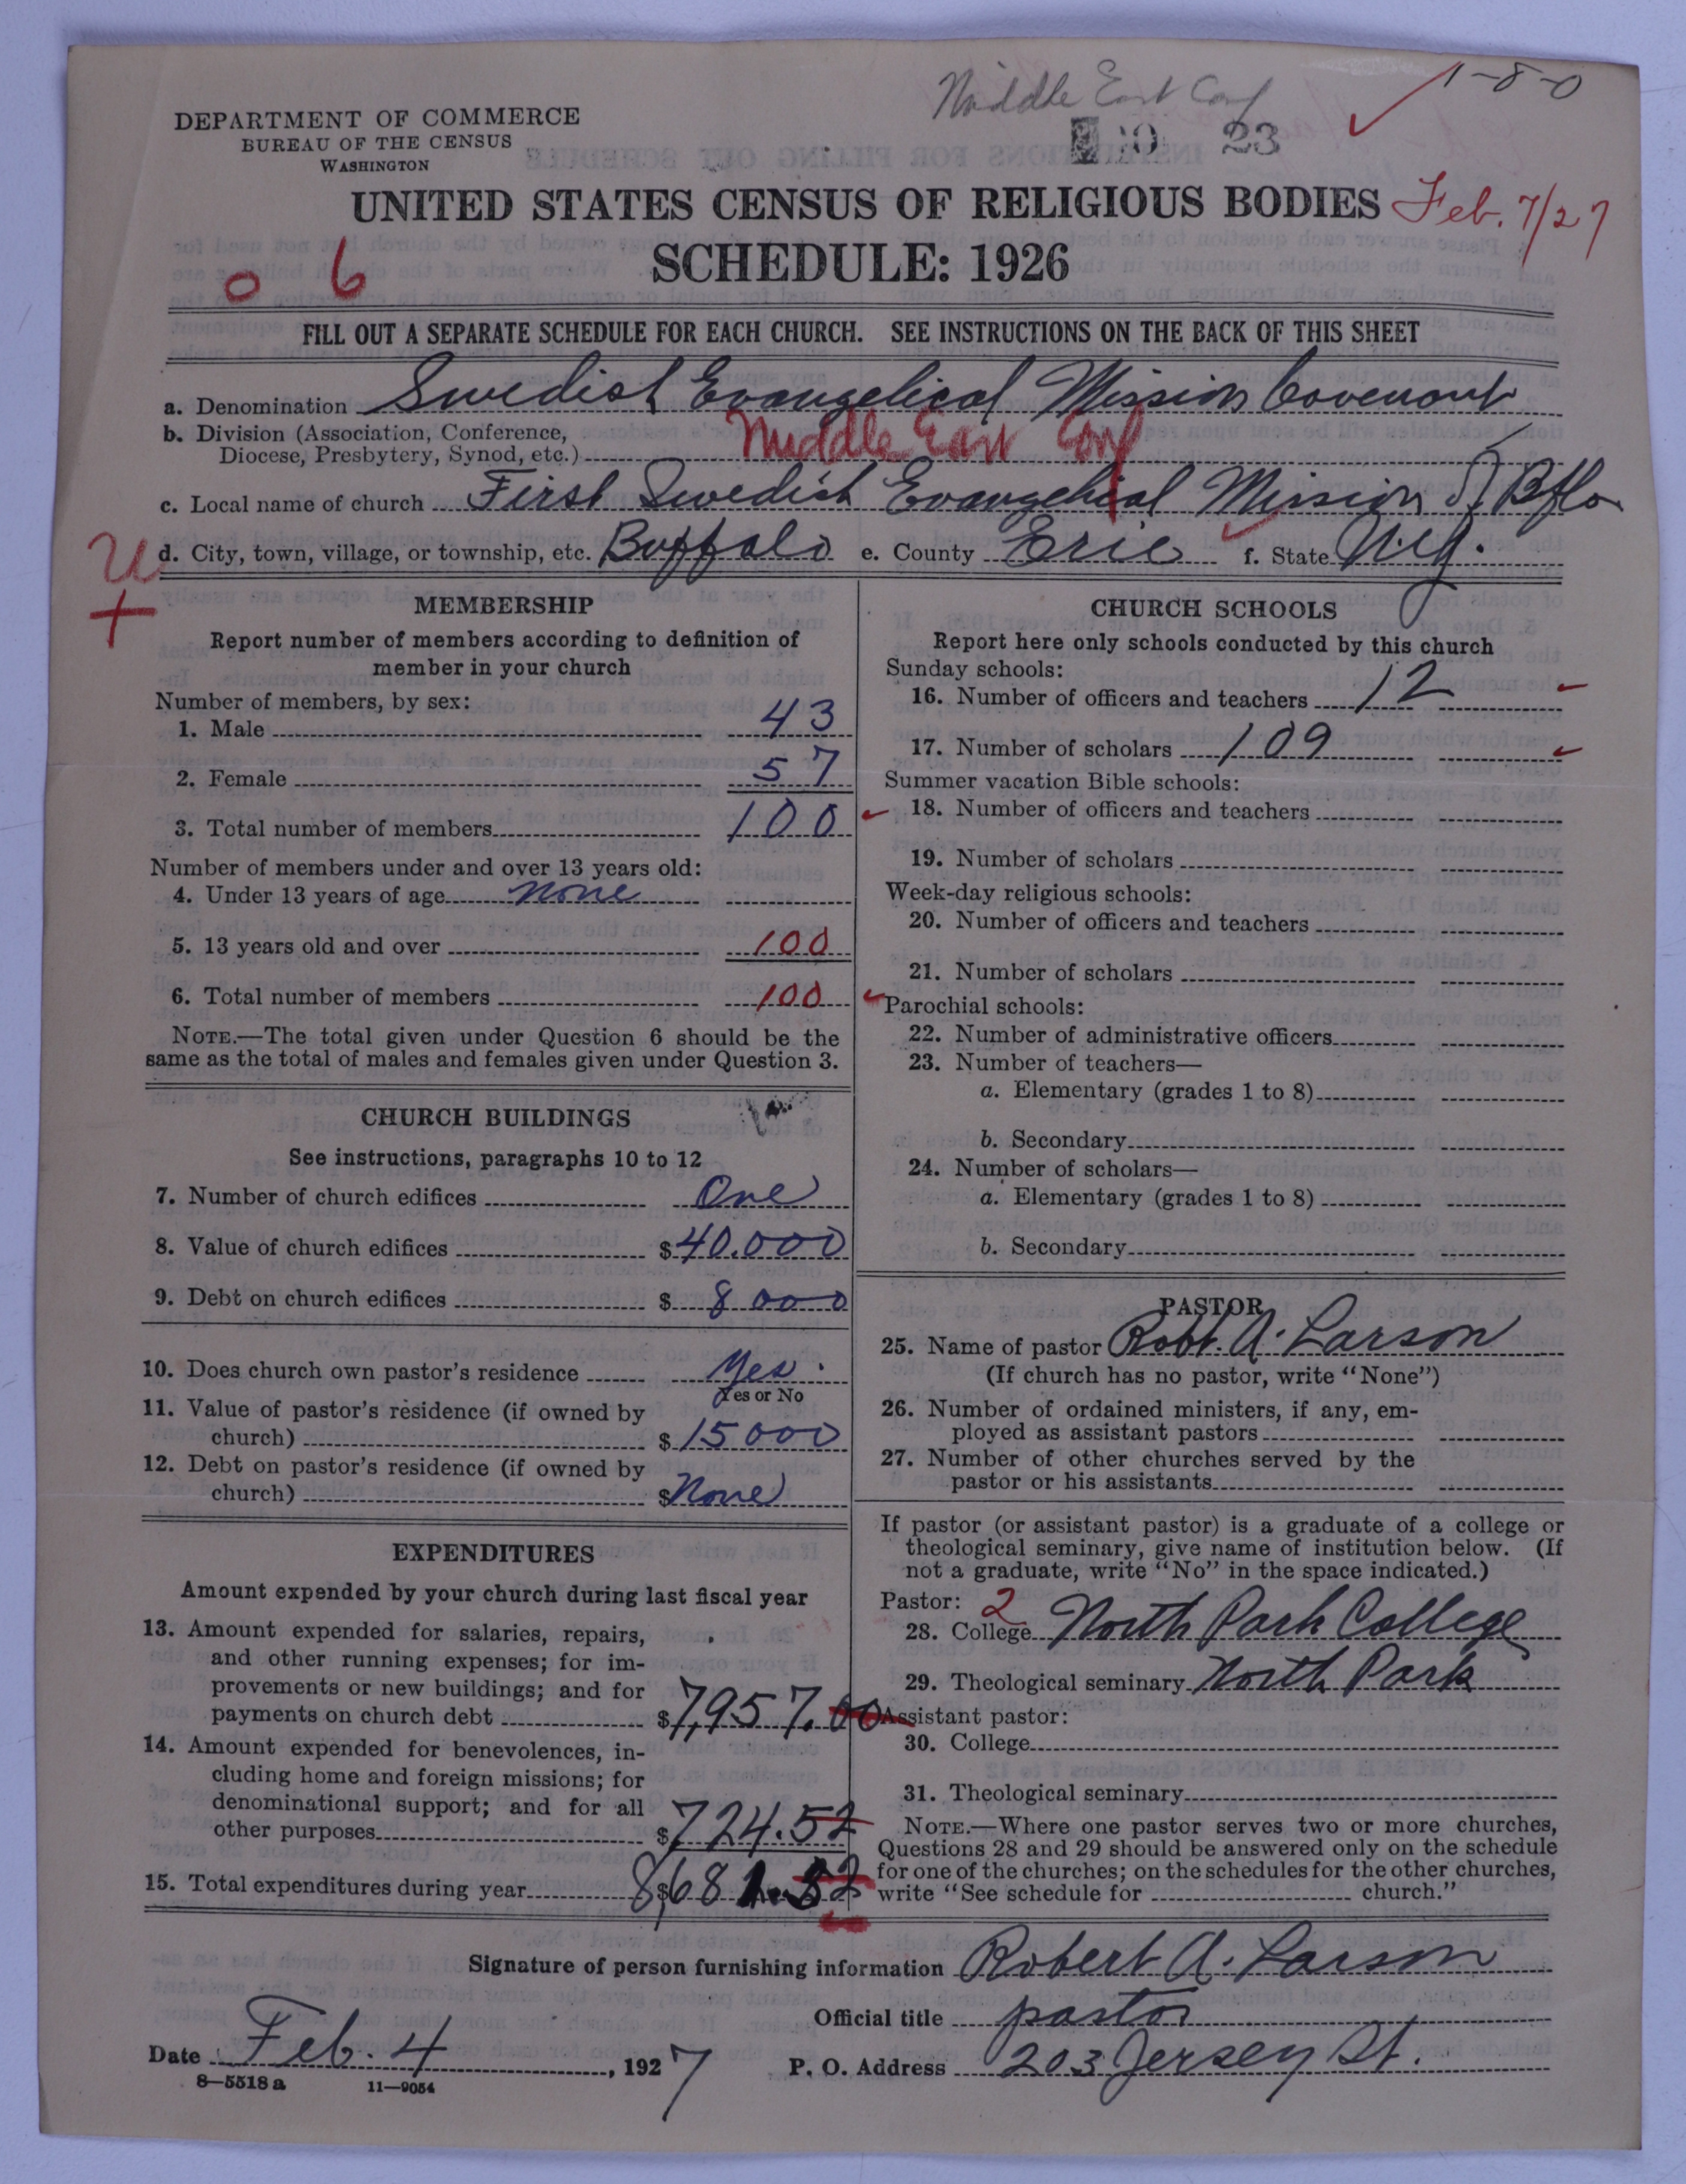 Middle East Conf
1-8-0
DEPARTMENT OF COMMERCE
BUREAU OF THE CENSUS
WASHINGTON
23
UNITED STATES CENSUS OF RELIGIOUS BODIES Feb. 7/27
SCHEDULE: 1926
0 6
FILL OUT A SEPARATE SCHEDULE FOR EACH CHURCH. SEE INSTRUCTIONS ON THE BACK OF THIS SHEET
a. Denomination Swedish Evangelical Mission Covenant
b. Division (Association, Conference,
Diocese, Presbytery, Synod, etc.) Middle East Conf
c. Local name of church First Swedish Evangelical Mission of Bflo
U d. City, town, village, or township, etc. Buffalo e. County Erie f. State N.Y.
+
MEMBERSHIP
Report number of members according to definition of
member in your church
Number of members, by sex:
1. Male 43
2. Female 57
3. Total number of members 100
Number of members under and over 13 years old:
4. Under 13 years of age none
5. 13 years old and over 100
6. Total number of members 100
NOTE.—The total given under Question 6 should be the
same as the total of males and females given under Question 3.
CHURCH BUILDINGS
See instructions, paragraphs 10 to 12
7. Number of church edifices One
8. Value of church edifices $40.000
9. Debt on church edifices $ 8 000
10. Does church own pastor's residence Yes.
Yes or No
11. Value of pastor's residence (if owned by
church) $15000
12. Debt on pastor's residence (if owned by
church) $None
EXPENDITURES
Amount expended by your church during last fiscal year
13. Amount expended for salaries, repairs,
and other running expenses; for im-
provements or new buildings; and for
payments on church debt $7,957.00
14. Amount expended for benevolences, in-
cluding home and foreign missions; for
denominational support; and for all
other purposes $724.52
15. Total expenditures during year $8,681.52
CHURCH SCHOOLS
Report here only schools conducted by this church
Sunday schools:
16. Number of officers and teachers 12
17. Number of scholars 109
Summer vacation Bible schools:
18. Number of officers and teachers
19. Number of scholars
Week-day religious schools:
20. Number of officers and teachers
21. Number of scholars
Parochial schools:
22. Number of administrative officers
23. Number of teachers—
a. Elementary (grades 1 to 8)
b. Secondary
24. Number of scholars—
a. Elementary (grades 1 to 8)
b. Secondary
PASTOR
25. Name of pastor Robt. A. Larson
(If church has no pastor, write "None")
26. Number of ordained ministers, if any, em-
ployed as assistant pastors
27. Number of other churches served by the
pastor or his assistants
If pastor (or assistant pastor) is a graduate of a college or
theological seminary, give name of institution below. (If
not a graduate, write "No" in the space indicated.)
Pastor: 2
28. College North Park College
29. Theological seminary North Park
Assistant pastor:
30. College
31. Theological seminary
NOTE.—Where one pastor serves two or more churches,
Questions 28 and 29 should be answered only on the schedule
for one of the churches; on the schedules for the other churches,
write "See schedule for church."
Signature of person furnishing information Robert A. Larson
Official title pastor
Date Feb. 4, 1927 P. O. Address 203 Jersey St.
8—5518a 11—9054